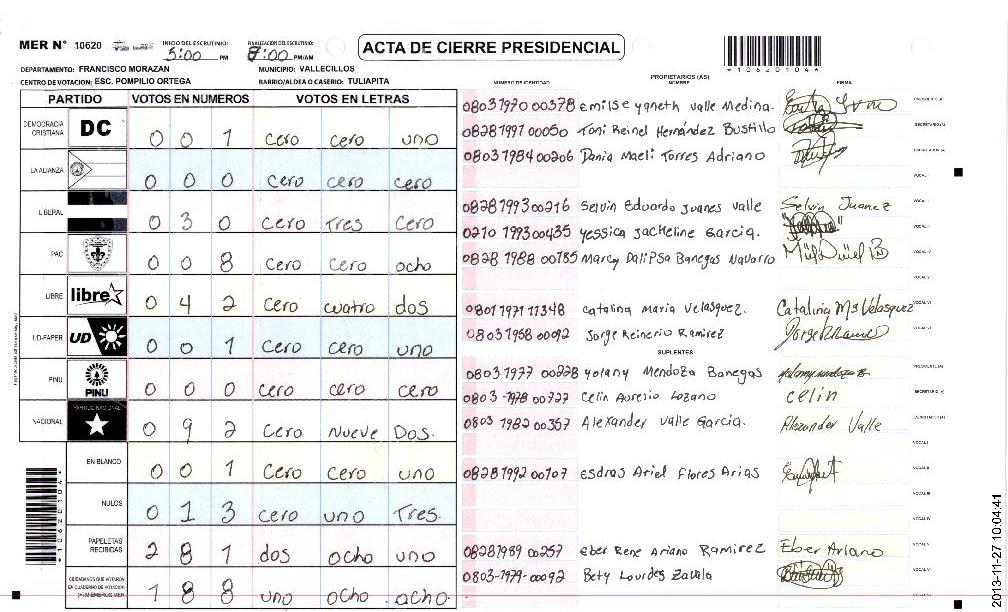 MER N° 10620 INICIO DEL ESCRUTINIO: 5:00 PM FINALIZACION DEL ESCRUTINIO: 8:00 PM/AM ACTA DE CIERRE PRESIDENCIAL
*106201044*
DEPARTAMENTO: FRANCISCO MORAZAN MUNICIPIO: VALLECILLOS
CENTRO DE VOTACION: ESC. POMPILIO ORTEGA BARRIO/ALDEA O CASERIO: TULIAPITA
PARTIDO VOTOS EN NUMEROS VOTOS EN LETRAS
DEMOCRACIA CRISTIANA DC 0 0 1 cero cero uno
LA ALIANZA 0 0 0 cero cero cero
LIBERAL 0 3 0 Cero Tres Cero
PAC 0 0 8 Cero Cero ocho
LIBRE libre 0 4 2 Cero cuatro dos
UD-FAPER UD 0 0 1 Cero Cero uno
PINU PINU 0 0 0 Cero Cero Cero
NACIONAL PARTIDO NACIONAL 0 9 2 Cero Nueve Dos.
EN BLANCO 0 0 1 Cero Cero uno
NULOS 0 1 3 Cero uno Tres.
PAPELETAS RECIBIDAS 2 8 1 dos ocho uno
CIUDADANOS QUE VOTARON EN CUADERNO DE VOTACION (+) MIEMBROS MER 1 8 8 uno ocho ocho.
PROPIETARIOS (AS)
NUMERO DE IDENTIDAD NOMBRE FIRMA
0803 1970 00378 Emilse yaneth Valle Medina. PRESIDENTE(A)
0828 1991 00050 Toni Reinel Hernández Bustillo SECRETARIO(A)
0803 1984 00206 Dania Maeli Torres Adriano ESCRUTADOR(A)
VOCAL I
0828 1993 00216 Selvin Eduardo Juanes Valle Selvin Juanez
0210 1993 00435 yessica Jacheline Garcia.
0828 1988 00785 Marcy Dalipsa Banegas Navarro VOCAL IV
VOCAL V
0801 1971 11348 Catalina Maria Velasquez. Catalina Mª Velasquez VOCAL VI
0803 1968 00092 Jorge Reinerio Ramirez
SUPLENTES
0803 1977 00228 yolany Mendoza Banegas PRESIDENTE(A)
0803 -1978 00727 Celin Aurelio Lozano celin SECRETARIO(A)
0803 1982 00357 Alexander Valle Garcia. Alexander Valle ESCRUTADOR(A)
VOCAL I
0828 1992 00107 Esdras Ariel Flores Arias VOCAL II
VOCAL III
VOCAL IV
0828 1989 00257 Eber Rene Ariano Ramirez Eber Ariano VOCAL V
0803-1979-00092 Bety Lourdes Zavala VOCAL VI
2013-11-27 10:04:41